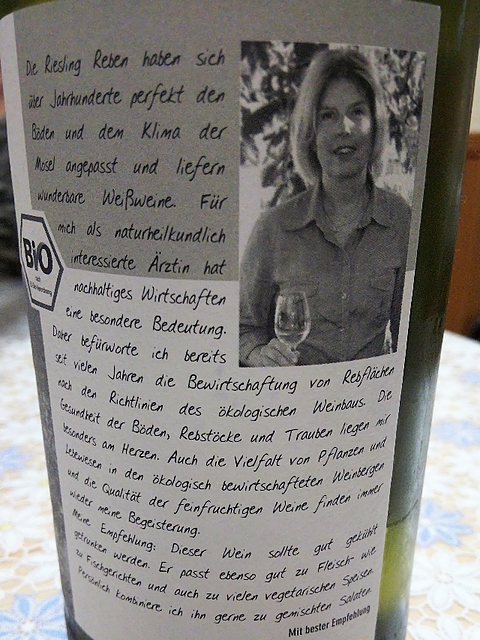 Die Riesling Reben haben sich
über Jahrhunderte perfekt den
Böden und dem Klima der
Mosel angepasst und liefern
wunderbare Weißweine. Für
mich als naturheilkundlich
interessierte Ärztin hat
nachhaltiges Wirtschaften
eine besondere Bedeutung.
Daher befürworte ich bereits
seit vielen Jahren die Bewirtschaftung von Rebflächen
nach den Richtlinien des ökologischen Weinbaus. Die
Gesundheit der Böden, Rebstöcke und Trauben liegen mir
besonders am Herzen. Auch die Vielfalt von Pflanzen und
Lebewesen in den ökologisch bewirtschafteten Weinbergen
und die Qualität der feinfruchtigen Weine finden immer
wieder meine Begeisterung.
Meine Empfehlung: Dieser Wein sollte gut gekühlt
getrunken werden. Er passt ebenso gut zu Fleisch- wie
zu Fischgerichten und auch zu vielen vegetarischen Speisen.
Persönlich kombiniere ich ihn gerne zu gemischten Salaten.
Mit bester Empfehlung
Bio